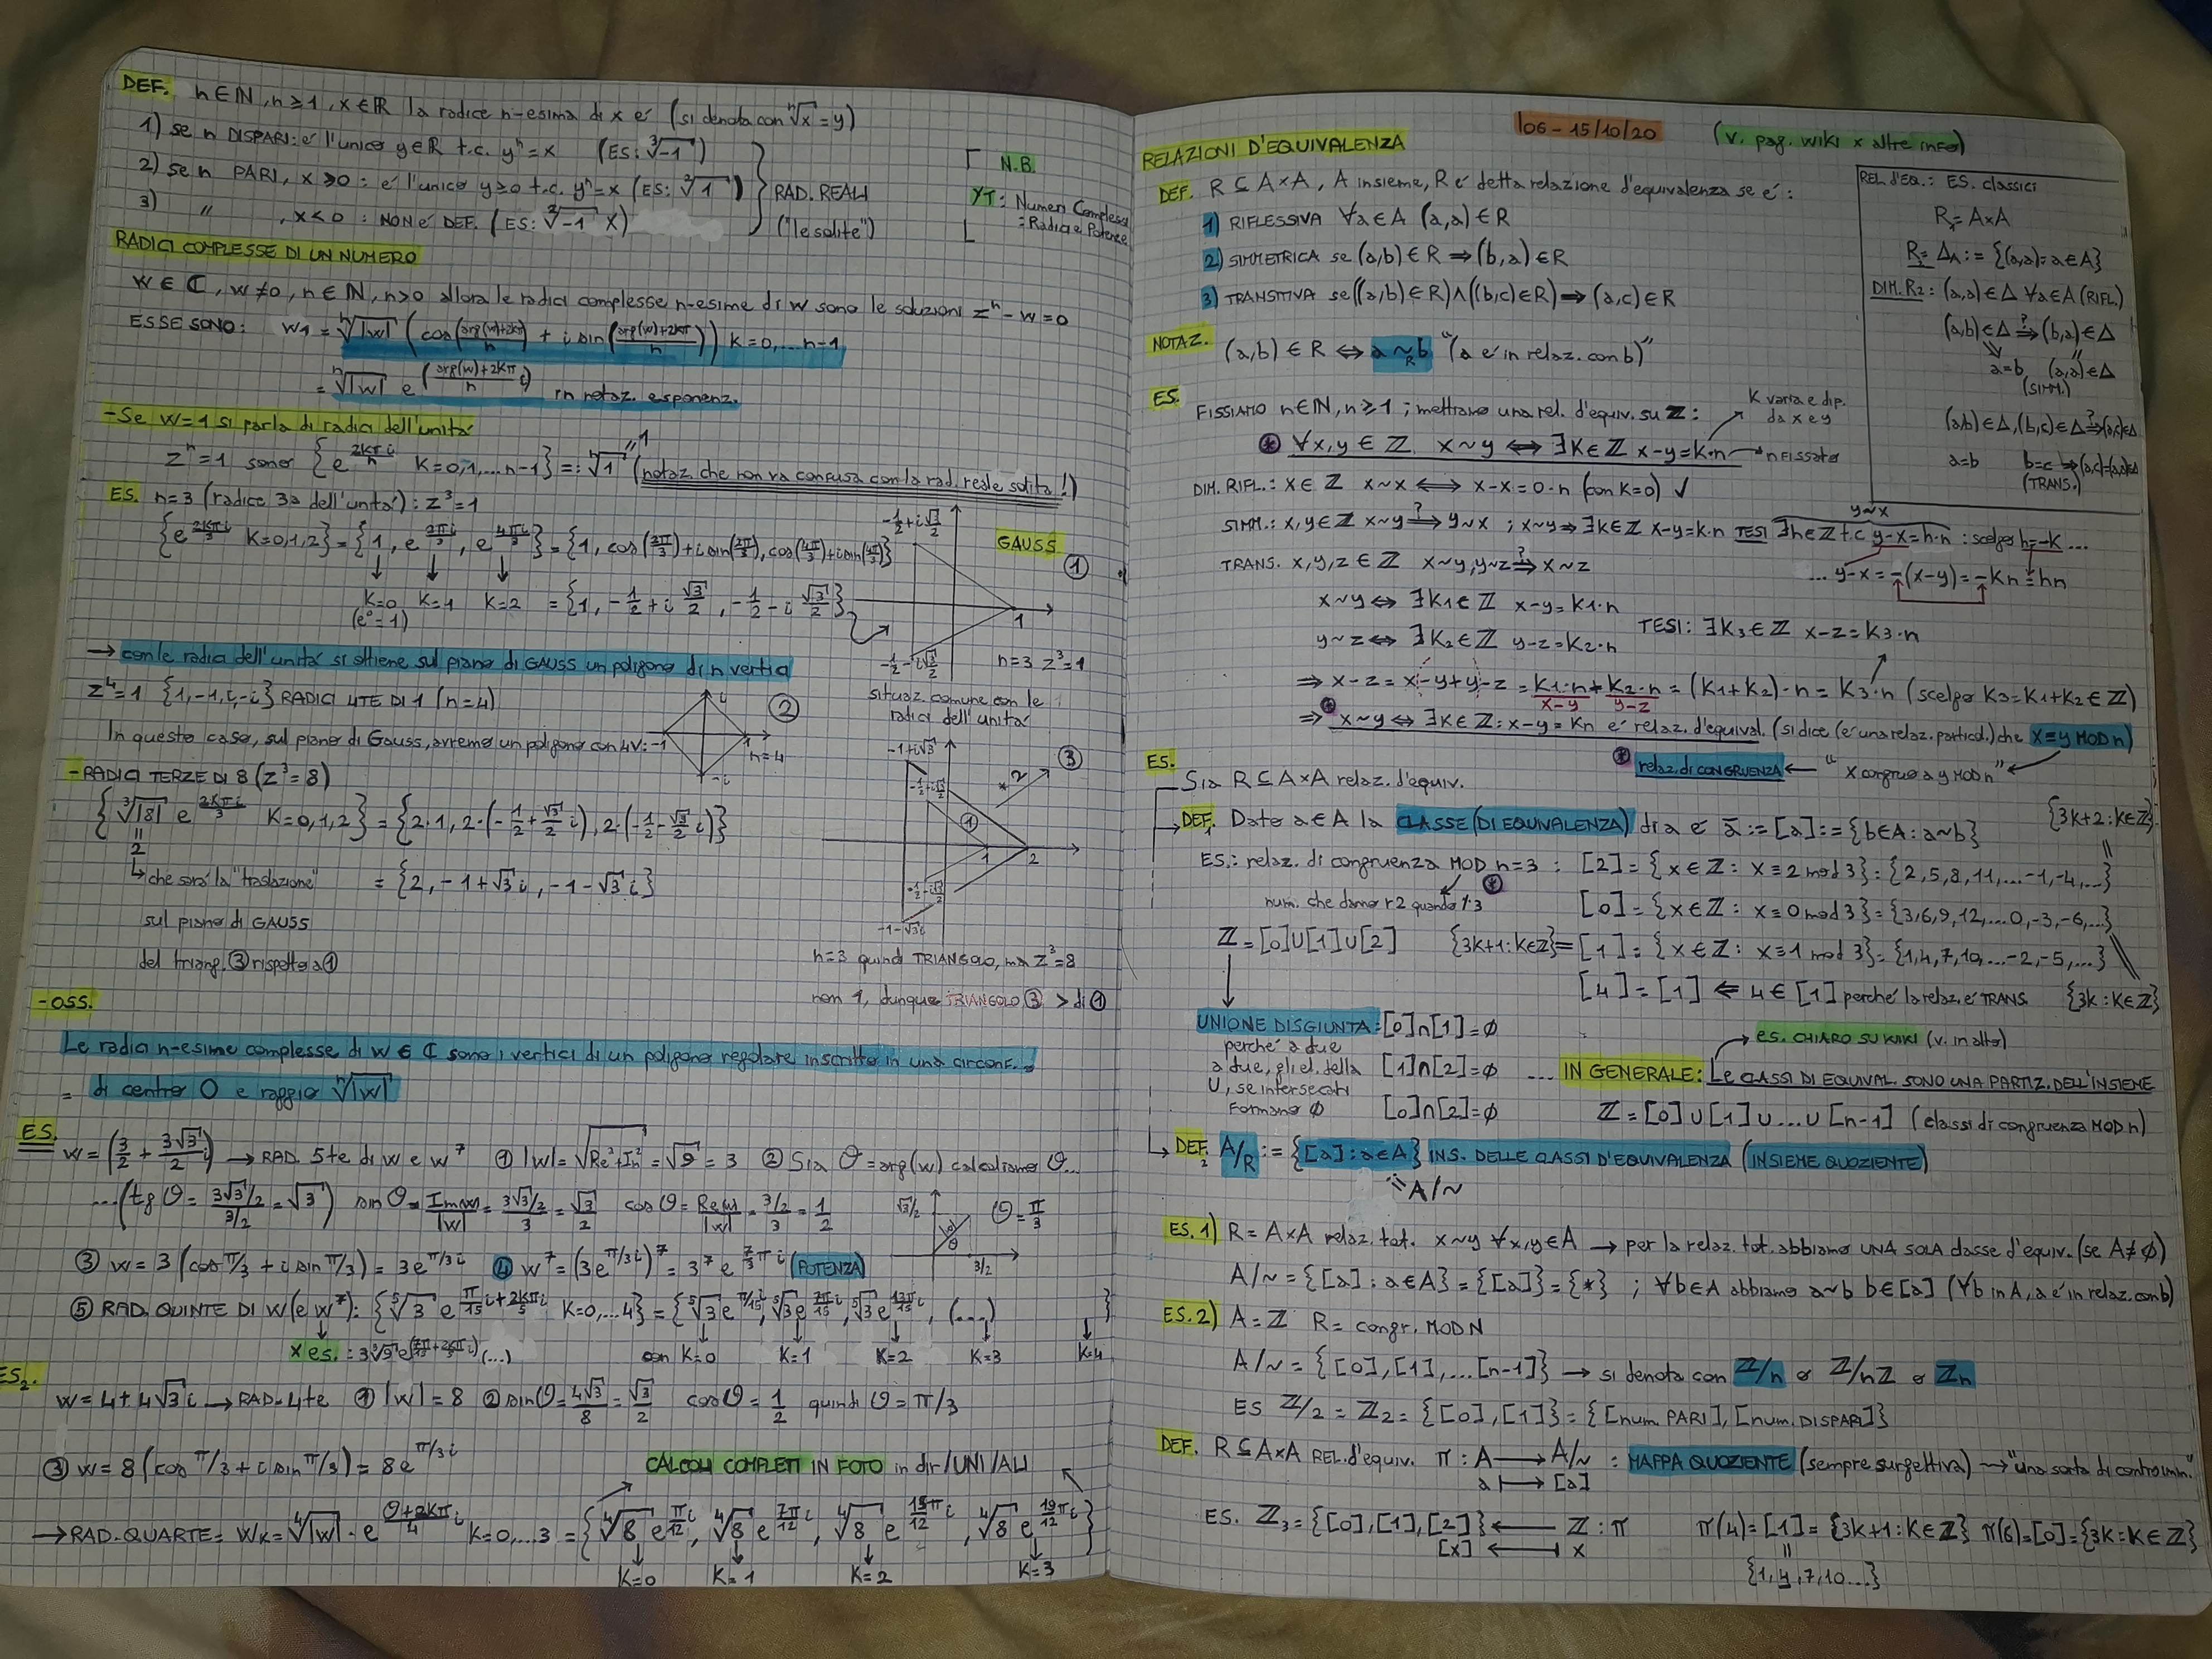 DEF. n∈ℕ, n≥1, x∈ℝ la radice n-esima di x é (si denota con ⁿ√x = y)
1) se n DISPARI: é l'unico y∈ℝ t.c. yⁿ=x (ES: ³√-1)
2) se n PARI, x≥0: é l'unico y≥0 t.c. yⁿ=x (ES: ²√1)
3) " , x<0 : NON é DEF. (ES: ²√-1 X)
RAD. REALI
("le solite")
N.B.
YT: Numeri Complessi
: Radici e Potenze
RADICI COMPLESSE DI UN NUMERO
w∈ℂ, w≠0, n∈ℕ, n>0 allora le radici complesse n-esime di w sono le soluzioni zⁿ-w=0
ESSE SONO: w₁ = ⁿ√|w| (cos((arg(w)+2kπ)/n) + i sin((arg(w)+2kπ)/n)) K=0,...n-1
= ⁿ√|w| e^((arg(w)+2Kπ)/n i) in notaz. esponenz.
- Se w=1 si parla di radici dell'unitá
zⁿ=1 sono {e^(2kπi/n) K=0,1,...n-1} =: ⁿ√1 "1 (notaz. che non va confusa con la rad. reale solita!)
ES. n=3 (radice 3a dell'unitá): z³=1
{e^(2kπi/3) K=0,1,2} = {1, e^(2πi/3), e^(4πi/3)} = {1, cos(2π/3)+i sin(2π/3), cos(4π/3)+i sin(4π/3)}
K=0 K=1 K=2 = {1, -1/2+i √3/2, -1/2-i √3/2}
(e⁰=1)
GAUSS
①
-1/2+i√3/2
1
-1/2-i√3/2
n=3 z³=1
→ con le radici dell'unitá si ottiene sul piano di GAUSS un poligono di n vertici
situaz. comune con le
radici dell'unitá
z⁴=1 {1,-1,i,-i} RADICI 4TE DI 1 (n=4)
②
i
-1
1
n=4
-i
In questo caso, sul piano di Gauss, avremo un poligono con 4V:
- RADICI TERZE DI 8 (z³=8)
{³√|8| e^(2Kπi/3) K=0,1,2} = {2·1, 2·(-1/2+√3/2 i), 2·(-1/2-√3/2 i)}
2
↳ che sará la "traslazione" = {2, -1+√3 i, -1-√3 i}
sul piano di GAUSS
del triang. ③ rispetto a ①
-1+i√3
-1/2+i√3/2
*2
③
①
1
2
-1/2-i√3/2
-1-√3i
n=3 quindi TRIANGOLO, ma z³=8
non 1, dunque TRIANGOLO ③ > di ①
- OSS.
Le radici n-esime complesse di w∈ℂ sono i vertici di un poligono regolare inscritto in una circonf.
= di centro O e raggio ⁿ√|w|
ES. w=(3/2 + 3√3/2 i) → RAD. 5te di w e w⁷ ① |w|=√(Re²+Im²)=√9=3 ② Sia θ=arg(w) calcoliamo θ...
...(tg θ = (3√3/2)/(3/2) = √3) sin θ = Im(w)/|w| = (3√3/2)/3 = √3/2 cos θ = Re(w)/|w| = (3/2)/3 = 1/2
θ = π/3
θ
3/2
③ w=3(cos π/3 + i sin π/3) = 3e^(π/3 i) ④ w⁷=(3e^(π/3 i))⁷ = 3⁷ e^(7/3 π i) (POTENZA)
⑤ RAD. QUINTE DI w (e w⁷): {⁵√3 e^(π/15 i + 2Kπ/5 i) K=0,...4} = {⁵√3 e^(π/15 i), ⁵√3 e^(7π/15 i), ⁵√3 e^(13π/15 i), (...) }
x es.: (...) con K=0 K=1 K=2 K=3 K=4
ES₂.
w=4+4√3 i → RAD. 4te ① |w|=8 ② sin θ=4√3/8=√3/2 cos θ=1/2 quindi θ=π/3
③ w=8(cos π/3 + i sin π/3) = 8e^(π/3 i)
CALCOLI COMPLETI IN FOTO in dir/UNI/ALI
→ RAD. QUARTE= Wk=⁴√|w| · e^((θ+2Kπ)/4 i) K=0,...3 = {⁴√8 e^(π/12 i), ⁴√8 e^(7π/12 i), ⁴√8 e^(13π/12 i), ⁴√8 e^(19π/12 i)}
K=0 K=1 K=2 K=3
l06 - 15/10/20
(v. pag. wiki x altre info)
RELAZIONI D'EQUIVALENZA
DEF. R⊆A×A, A insieme, R é detta relazione d'equivalenza se é:
1) RIFLESSIVA ∀a∈A (a,a)∈R
2) SIMMETRICA se (a,b)∈R ⇒ (b,a)∈R
3) TRANSITIVA se((a,b)∈R)∧((b,c)∈R) ⇒ (a,c)∈R
NOTAZ. (a,b)∈R ⇔ a ~R b "(a é in relaz. con b)"
REL. d'EQ.: ES. classici
R₁=A×A
R₂=Δ_A := {(a,a)=a∈A}
DIM. R2: (a,a)∈Δ ∀a∈A (RIFL.)
(a,b)∈Δ ?⇒ (b,a)∈Δ
a=b (a,a)∈Δ
(SIMM.)
(a,b)∈Δ, (b,c)∈Δ ?⇒ (a,c)∈Δ
a=b b=c ⇒ (a,c)=(a,a)∈Δ
(TRANS.)
ES. FISSIAMO n∈ℕ, n≥1; mettiamo una rel. d'equiv. su ℤ:
K varia e dip.
da x e y
⊛ ∀x,y∈ℤ x~y ⇔ ∃K∈ℤ x-y=k·n → n fissato
DIM. RIFL.: x∈ℤ x~x ⇔ x-x=0·n (con K=0) ✓
y~x
SIMM.: x,y∈ℤ x~y ?⇒ y~x ; x~y ⇒ ∃k∈ℤ x-y=K·n TESI ∃h∈ℤ t.c y-x=h·n : scelgo h=-K...
... y-x=-(x-y)=-Kn=hn
TRANS. x,y,z∈ℤ x~y, y~z ?⇒ x~z
x~y ⇔ ∃K₁∈ℤ x-y=K₁·n
y~z ⇔ ∃K₂∈ℤ y-z=K₂·n TESI: ∃K₃∈ℤ x-z=K₃·n
⇒ x-z=x-y+y-z=K₁·n+K₂·n=(K₁+K₂)·n=K₃·n (scelgo K₃=K₁+K₂∈ℤ)
x-y y-z
⇒ ⊛ x~y ⇔ ∃K∈ℤ: x-y=Kn é relaz. d'equival. (si dice (é una relaz. particol.) che x≡y MOD n)
⊛ relaz. di CONGRUENZA ← "x congruo a y MOD n"
ES.
Sia R⊆A×A relaz. d'equiv.
DEF.₁ Dato a∈A la CLASSE (DI EQUIVALENZA) di a é ā := [a] := {b∈A: a~b}
{3k+2: k∈ℤ}
ES.: relaz. di congruenza MOD n=3 : [2]={x∈ℤ: x≡2 mod 3}={2,5,8,11,...-1,-4,...}
num. che danno r2 quando /:3
[0]={x∈ℤ: x≡0 mod 3}={3,6,9,12,...0,-3,-6,...}
ℤ=[0]∪[1]∪[2] {3k+1: k∈ℤ}=[1]={x∈ℤ: x≡1 mod 3}={1,4,7,10,...-2,-5,...}
[4]=[1] ⇐ 4∈[1] perché la relaz. é TRANS. {3k: k∈ℤ}
UNIONE DISGIUNTA: [0]∩[1]=∅
perché a due
a due, gli el. della [1]∩[2]=∅
U, se intersecati
formano ∅ [0]∩[2]=∅
es. CHIARO SU WIKI (v. in alto)
... IN GENERALE: Le CLASSI DI EQUIVAL. SONO UNA PARTIZ. DELL'INSIEME
ℤ=[0]∪[1]∪...∪[n-1] (classi di congruenza MOD n)
DEF.₂ A/R := {[a]: a∈A} INS. DELLE CLASSI D'EQUIVALENZA (INSIEME QUOZIENTE)
A/~
ES. 1) R=A×A relaz. tot. x~y ∀x,y∈A → per la relaz. tot. abbiamo UNA SOLA classe d'equiv. (se A≠∅)
A/~={[a]: a∈A}={[a]}={*} ; ∀b∈A abbiamo a~b b∈[a] (∀b in A, a é in relaz. con b)
ES. 2) A=ℤ R=congr. MOD N
A/~={[0],[1],...[n-1]} → si denota con ℤ/n o ℤ/nℤ o ℤn
ES ℤ/2=ℤ₂={[0],[1]}={[num. PARI],[num. DISPARI]}
DEF. R⊆A×A REL. d'equiv. π: A → A/~ : MAPPA QUOZIENTE (sempre surgettiva) → "una sorta di controimm."
a ↦ [a]
ES. ℤ₃={[0],[1],[2]} ← ℤ : π π(4)=[1]={3k+1: K∈ℤ} π(6)=[0]={3K: K∈ℤ}
[x] ↤ x
{1,4,7,10...}